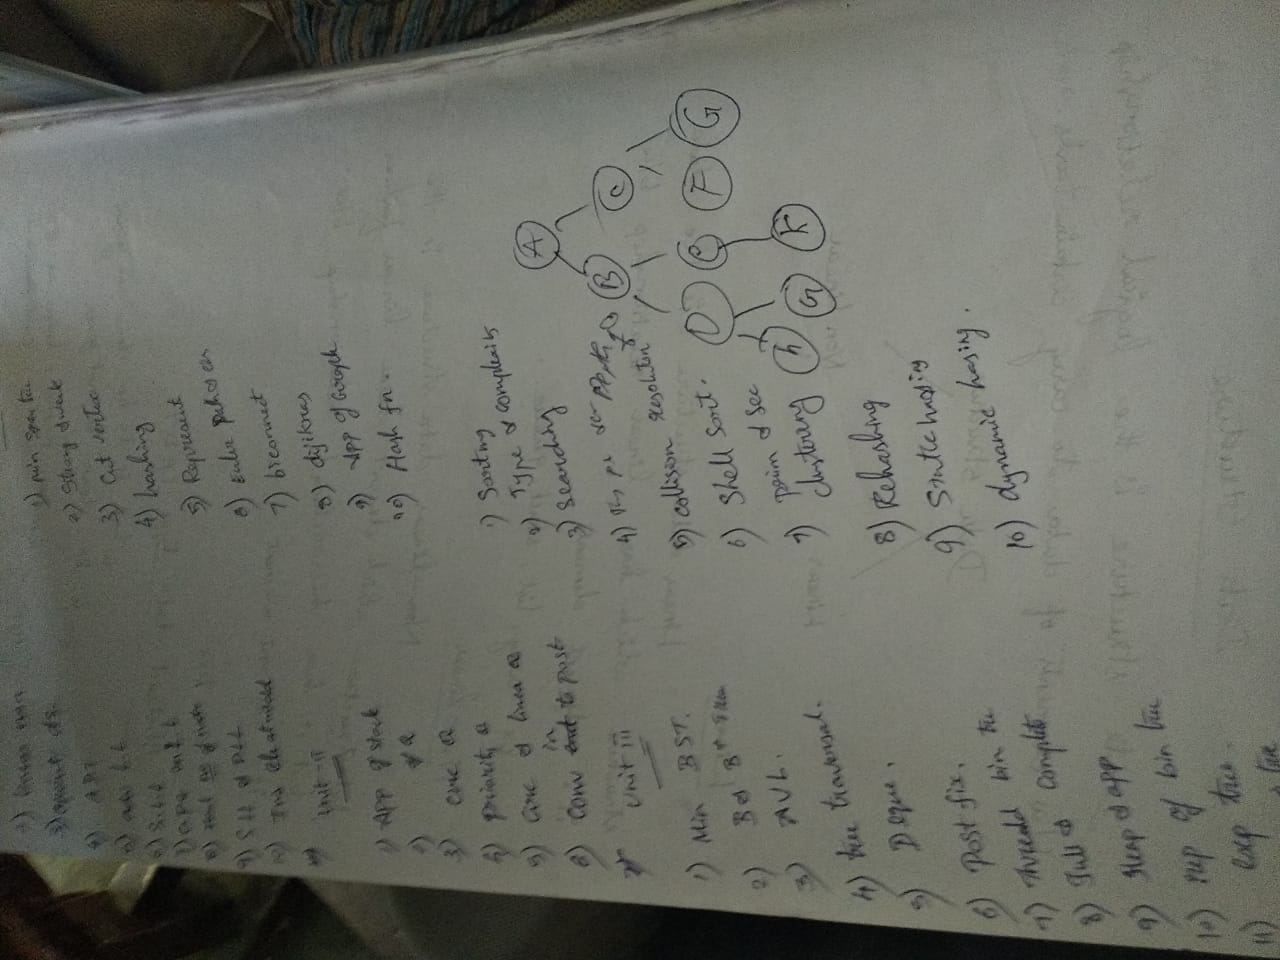 2) linear
3)
4) ADT
5)
6) S.L.L
7)
8) of node
9) SLL & DLL
10)
Unit-II
1) App of stack
2) Q
3) circ Q
4) priority Q
5) Circ & linea Q
6) Conv in to post
7) Unit III
1) Min BST.
2) B & B+ Tree
3) AVL.
4) tree traversal.
5) Deque.
6) Post fix.
7) Thread bin tree
8) Full & Complete
9) Heap & app
10) rep of bin tree
11) exp tree.
tree
1) min span tree
2) Strong & weak
3) Cut vertex
4) hashing
5) Represent
6) Euler path & cir
7) biconnect
8) dijikras
9) App of Graph
10) Hash fn.
1) Sorting
2) Type & complexity
3) Searching
4)
5) collision resolution
6) Shell Sort.
7) prim & sec
clustering
8) Rehashing
9) Static hasing
10) dynamic hasing.
A
B C
D e F G
h G K